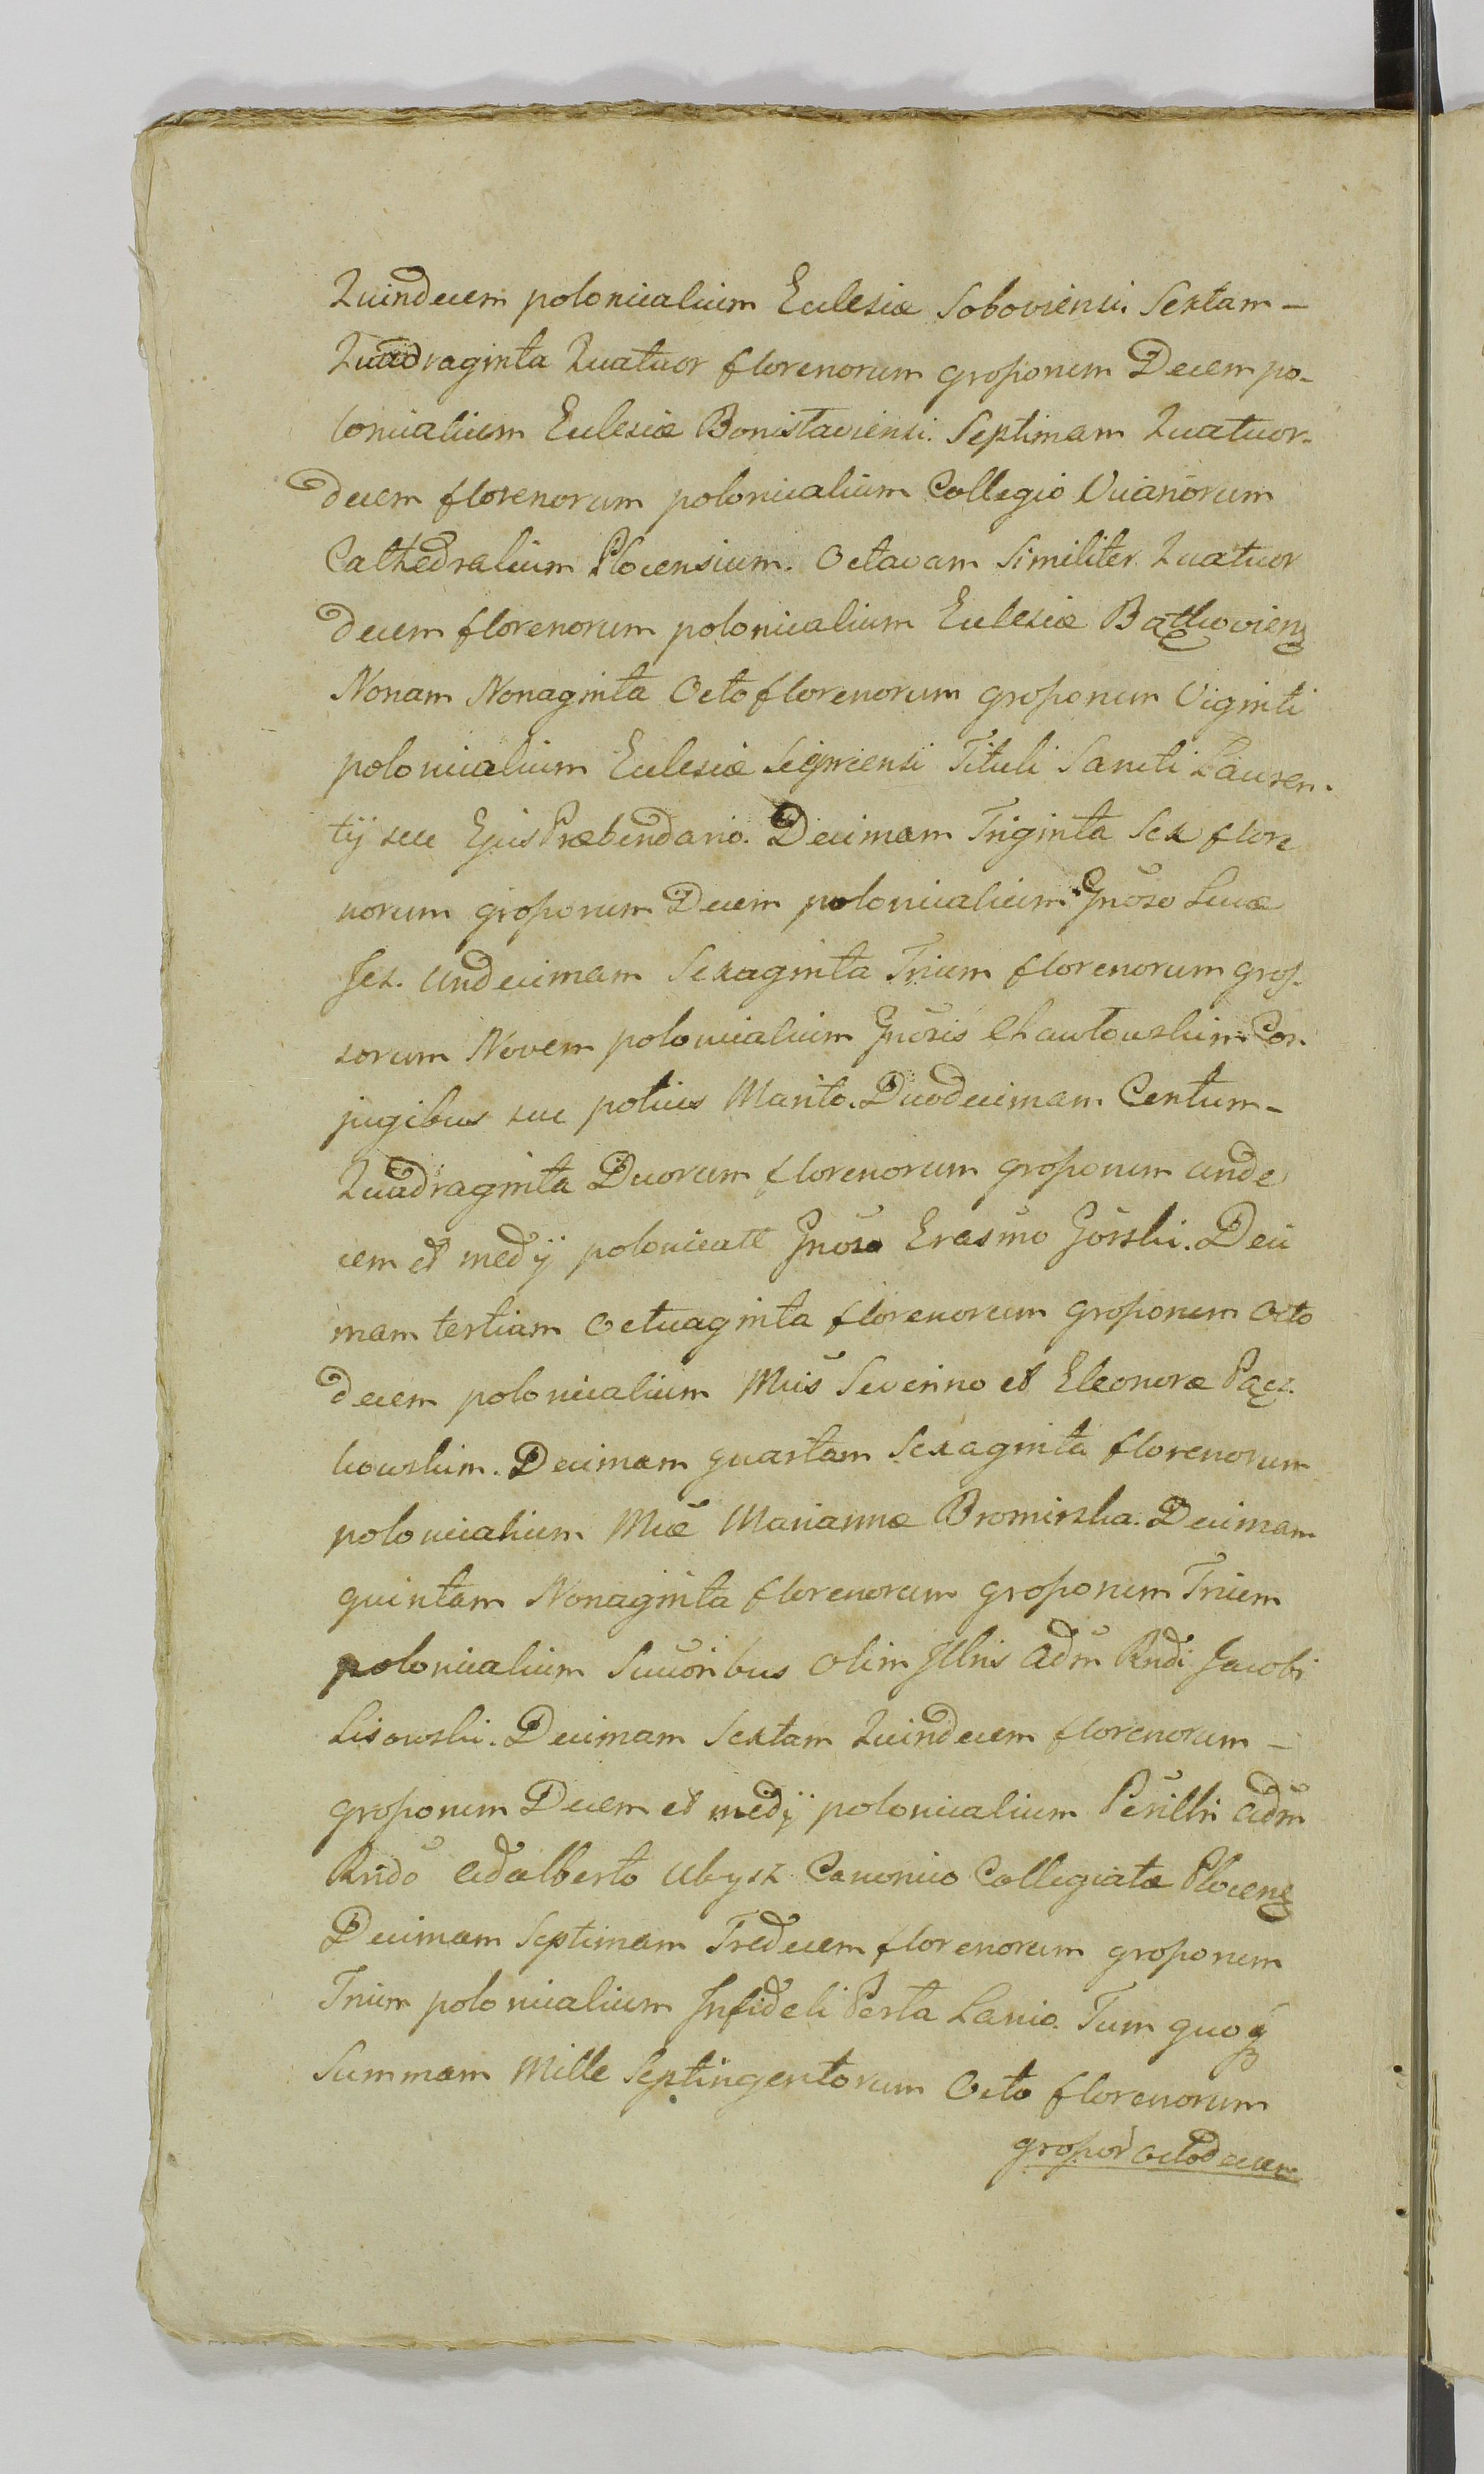 Quindecem polonicalium Ecclesiæ Soboviensi. Sextam –
Quadraginta Quatuor florenorum grossorum Decem po-
lonicalium Ecclesiæ Bonislaviensi. Septimam Quatuor-
decem florenorum polonicalium Collegio Vicariorum
Cathedralium Plocensium. Octavam Similiter Quatuor
decem florenorum polonicalium Ecclesiæ
Nonam Nonaginta Octo florenorum grossorum Viginti
polonicalium Ecclesiæ Tituli Sancti Lauren-
tij seu Ejus Præbendario. Decimam Triginta Sex flore
norum grossorum Decem polonicalium Gñoso Lucæ
Jeż. Undecimam Sexaginta Trium florenorum gros-
sorum Novem polonicalium Gñosis Chawłowskim Con
jugibus seu potius Marito. Duodecimam Centum –
Quadraginta Duorum florenorum grossorum unde
cem et medÿ polonicall Gñoso Erasmo Górski. Deci
mam tertiam Octuaginta florenorum grossorum Octo
decem polonicalium Mcis Severino et Eleonoræ Pącz-
kowskim. Decimam quartam Sexaginta florenorum
polonicalium Mcæ Mariannæ Bromirska. Decimam
quintam Nonaginta florenorum grossorum Trium
polonicalium Succoribus olim Jllris adm Rndi Jacobi
Lisowski. Decimam Sextam Quindecem florenorum –
grossorum Decem et medÿ polonicalium Perillri adm
Rndo Adalberto Ubysz Canonico Collegiatæ Plocens
Decimam Septimam Tredecem florenorum grossorum
Trium polonicalium Jnfideli Perta Lanio. Tum quoq
Summam Mille Septingentorum Octo florenorum
grossor octodecem